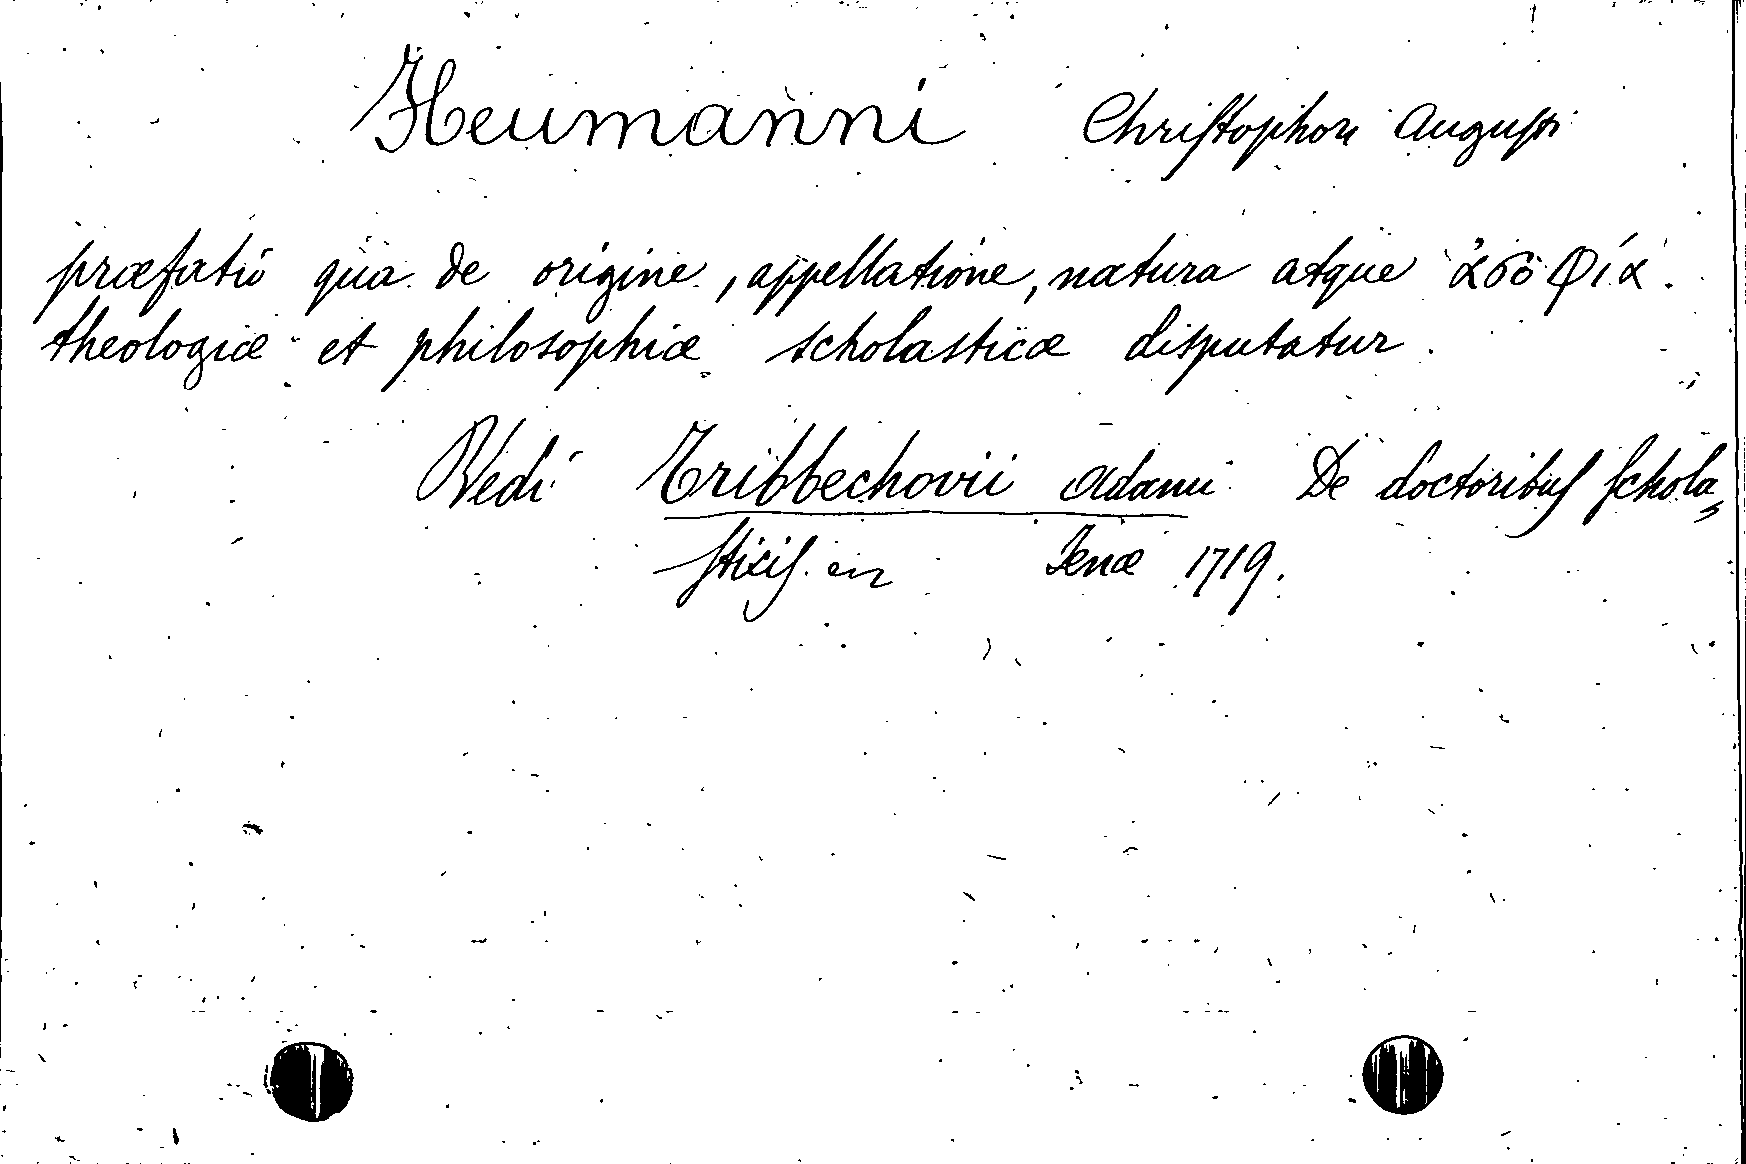 Heumanni Christophori Augusti
præfatio qua de origine, appellatione, natura atque ἀσοφίᾳ.
theologiæ et philosophiæ scholasticæ disputatur.
Vedi Tribbechovii Adami De doctoribus schola=
sticis. Jenæ 1719.